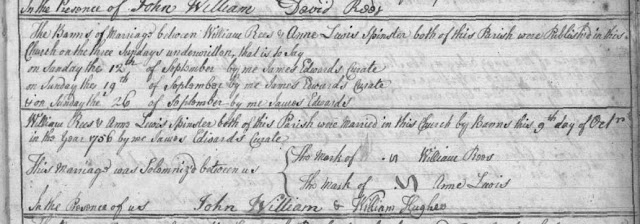 In the Presence of John William David Rees
The Banns of Marriage between William Rees & Anne Lewis Spinster both of this Parish were Published in this
Church on the three Sundays underwritten, that is to Say
on Sunday the 12th of September by me James Edwards Curate
on Sunday the 19th of September by me James Edwards Curate
& on Sunday the 26 of September by me James Edwards
William Rees & Anne Lewis Spinster both of this Parish were Married in this Church by Banns this 9th day of Octr
in the Year 1756 by me James Edwards Curate
This Marriage was Solemniz'd between us
The Mark of S William Rees
The Mark of S Anne Lewis
In the Presence of us John William & William Hughes